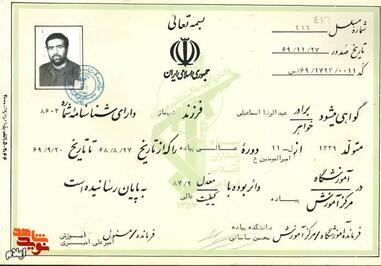 بسمه تعالی
شماره مسلسل ۴۱۶
تاریخ صدور ۶۹/۱۱/۲۷
کد ۶۹/۱۷۲۳/۰۰۱۱/س
جمهوری اسلامی ایران
گواهی میشود برادر خواهر عبدالرضا اسماعیلی فرزند شهباز دارای شناسنامه شماره ۸۶۰۳
متولد ۱۳۳۹ از ل-۱۱ امیرالمومنین ع دورهٔ عالی پیاده را که از تاریخ ۶۸/۸/۲۷ تا تاریخ ۶۹/۹/۲۰
در آموزشگاه مرکز آموزش پیاده دائر بوده با معدل کیفیت ۸۷/۹ عالی به پایان رسانیده است
فرمانده آموزشگاه/مرکز آموزش دانشکده پیاده
محسن ساسانی
فرمانده مسئول آموزش
امیرعلی امیری
نوید شاهد
ایلام